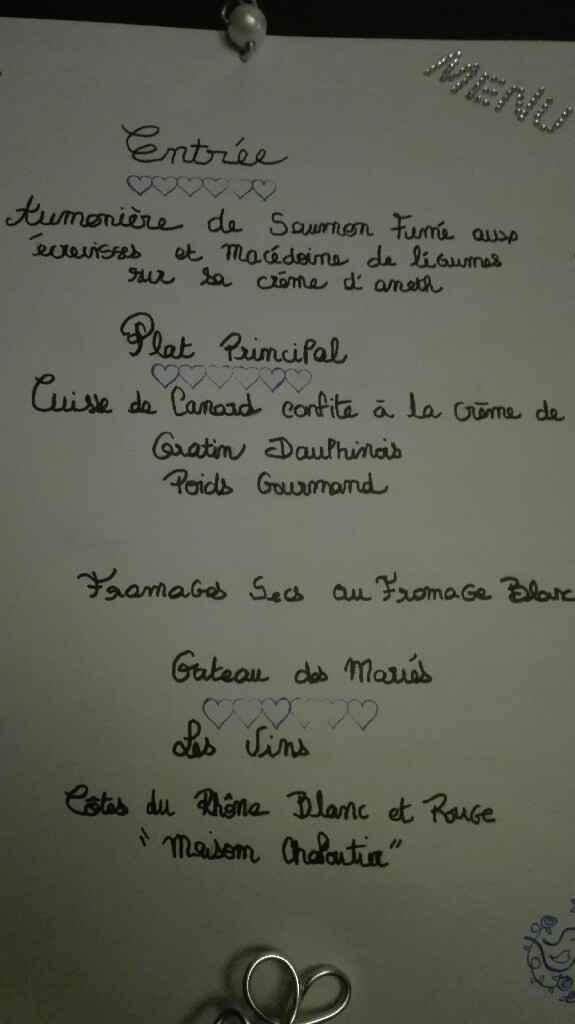 MENU
Entrée
Aumonière de Saumon Fumé aux
écrevisses et Macédoine de légumes
sur sa crème d'aneth
Plat Principal
Cuisse de Canard confite à la crème de
Gratin Dauphinois
Poids Gourmand
Framages Secs ou Fromage Blanc
Gateau des Mariés
Les Vins
Côtes du Rhône Blanc et Rouge
"Maison Chapoutier"